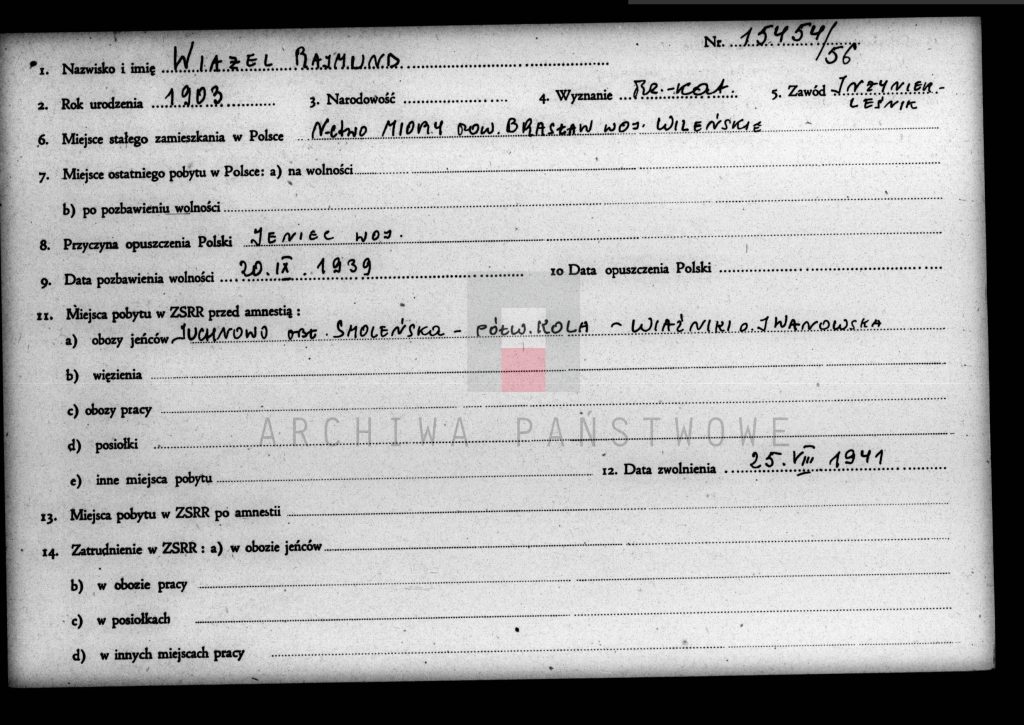 Nr. 15454/56
1. Nazwisko i imię WIAZEL RAJMUND
2. Rok urodzenia 1903 3. Narodowość 4. Wyznanie Rz.-kat. 5. Zawód INŻYNIER-
LEŚNIK
6. Miejsce stałego zamieszkania w Polsce N-ctwo MIORY POW. BRASŁAW WOJ. WILEŃSKIE
7. Miejsce ostatniego pobytu w Polsce: a) na wolności
b) po pozbawieniu wolności
8. Przyczyna opuszczenia Polski JENIEC WOJ.
9. Data pozbawienia wolności 20.IX.1939 10 Data opuszczenia Polski
11. Miejsca pobytu w ZSRR przed amnestią :
a) obozy jeńców JUCHNOWO OBŁ. SMOLEŃSKA - PÓŁW. KOLA - WIAŹNIKI O. IWANOWSKA
b) więzienia
c) obozy pracy
ARCHIWA PAŃSTWOWE
d) posiołki
e) inne miejsca pobytu 12. Data zwolnienia 25.VIII 1941
13. Miejsca pobytu w ZSRR po amnestii
14. Zatrudnienie w ZSRR : a) w obozie jeńców
b) w obozie pracy
c) w posiołkach
d) w innych miejscach pracy